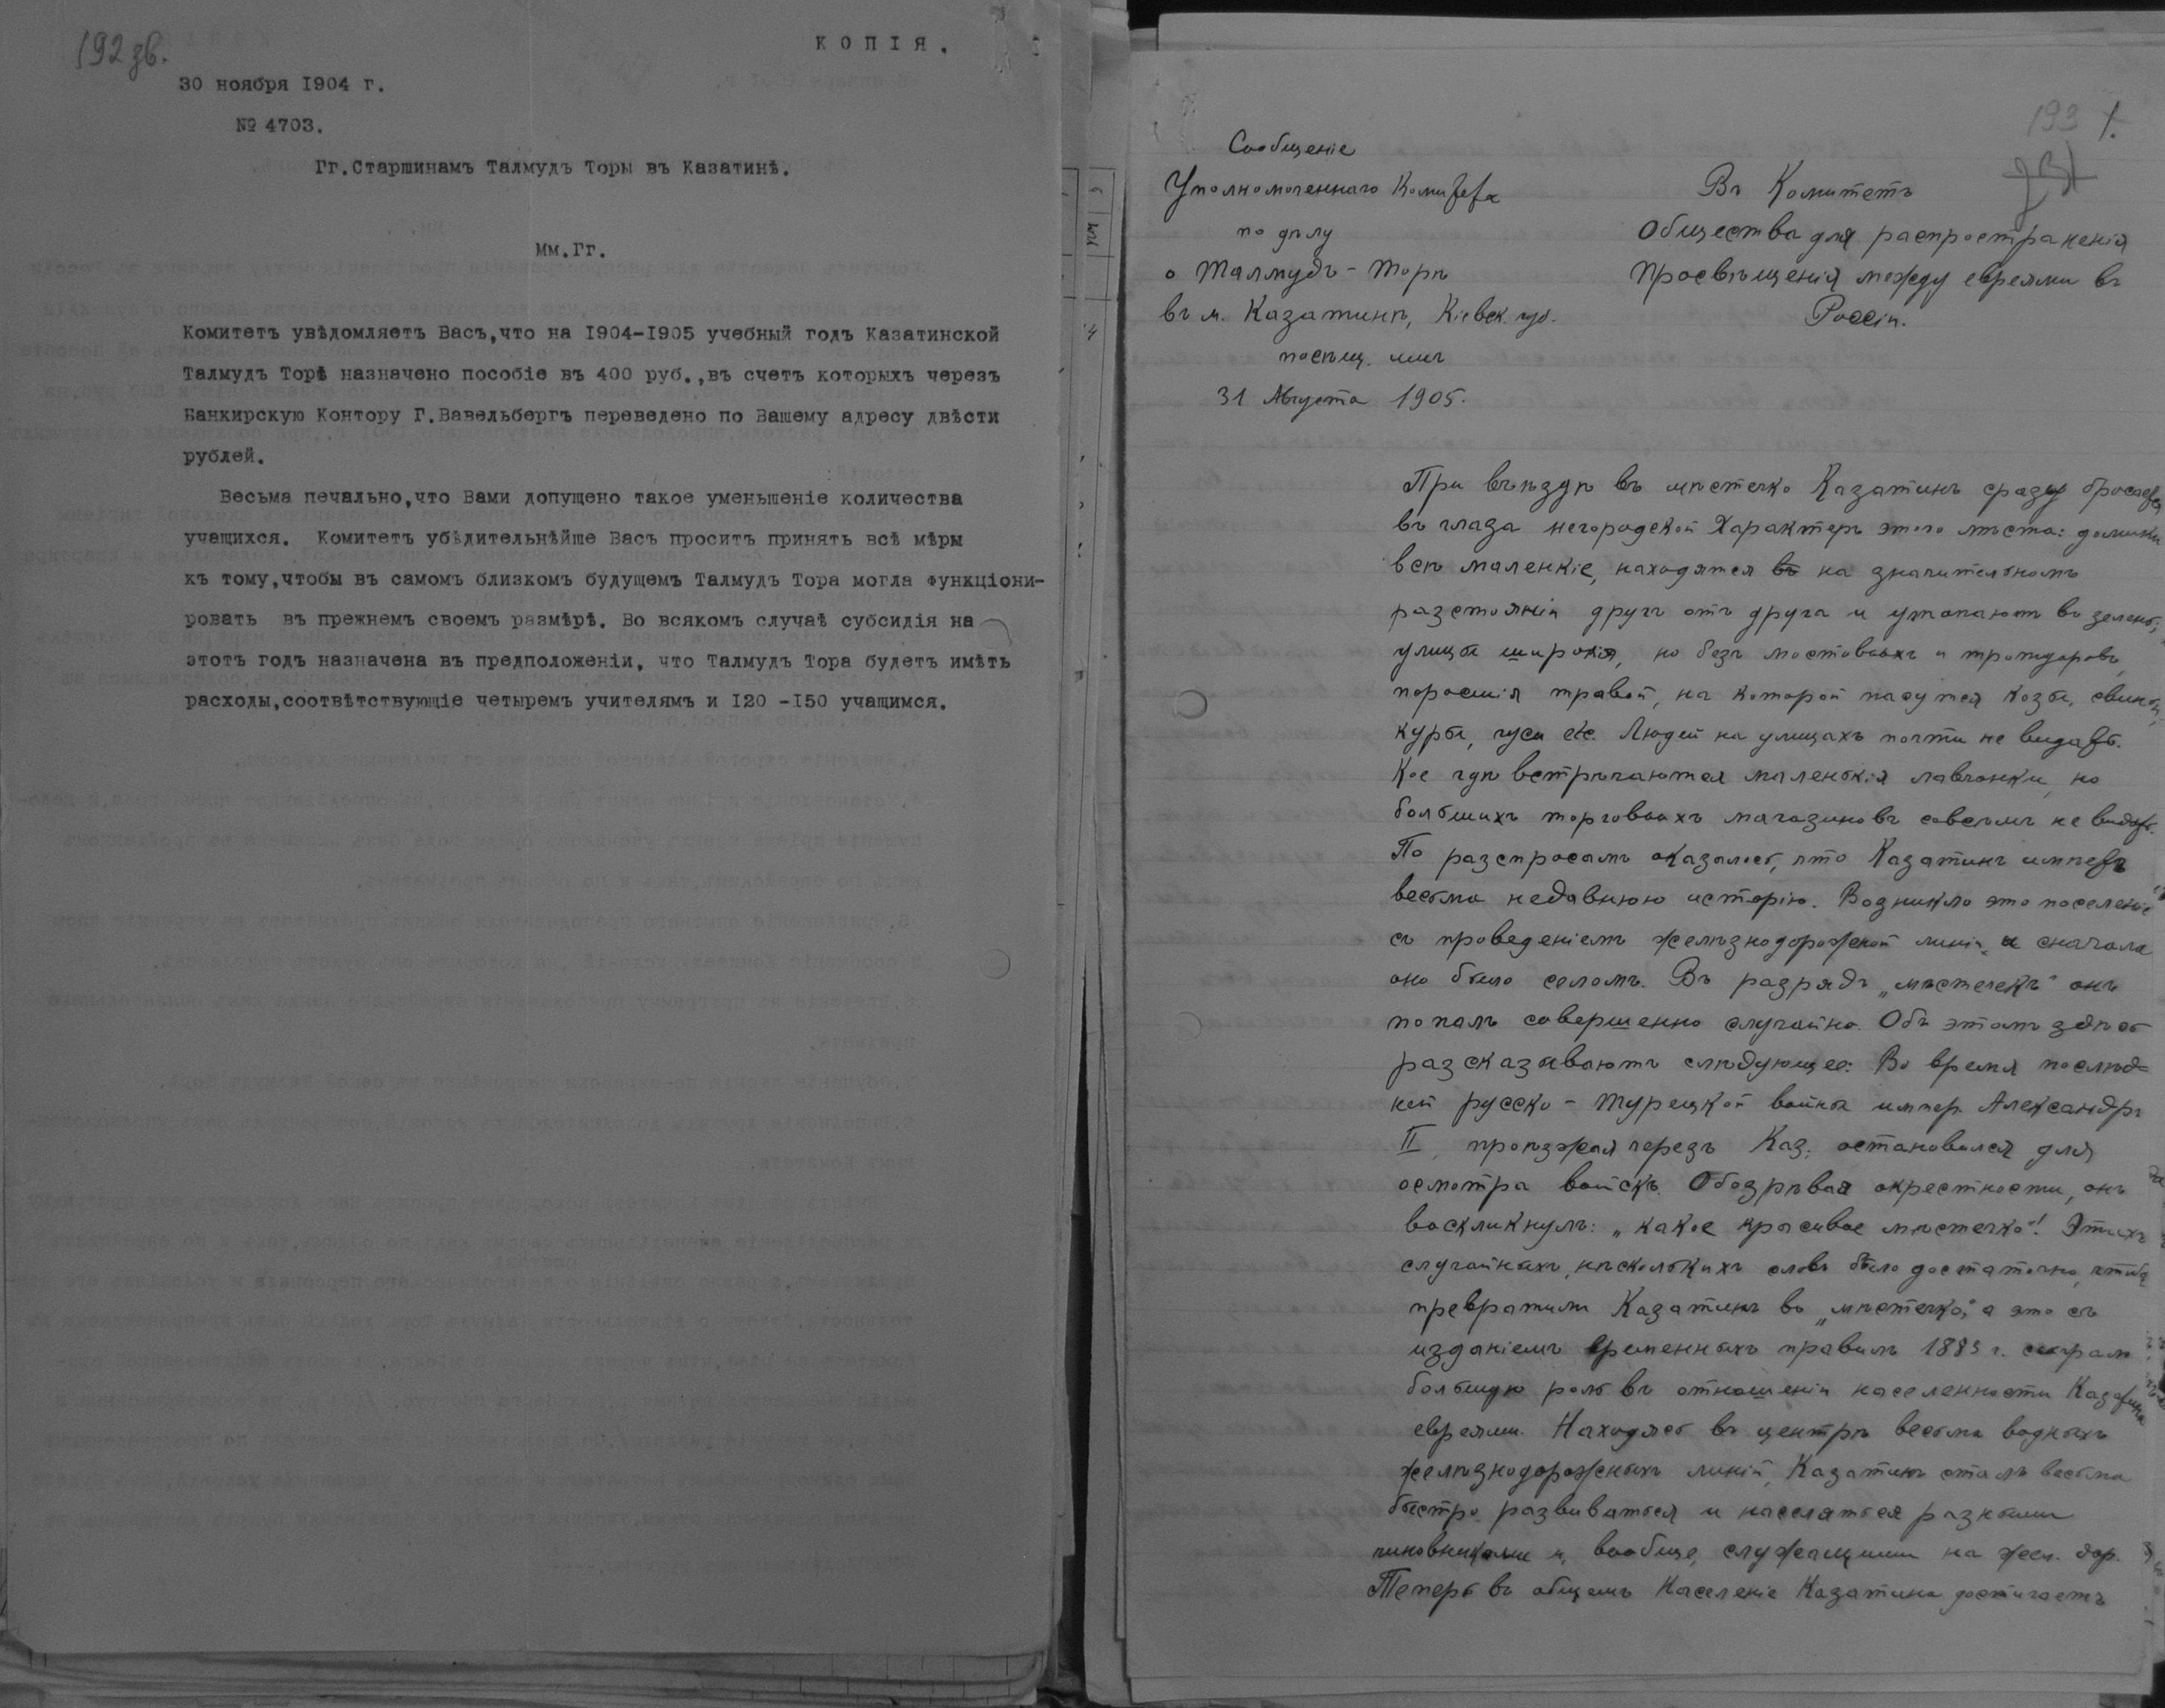 192 зв.
КОПІЯ.
30 ноября 1904 г.
№ 4703.
Гг.Старшинамъ Талмудъ Торы въ Казатинѣ.
Мм.Гг.
Комитетъ увѣдомляетъ Васъ,что на 1904-1905 учебный годъ Казатинской
Талмудъ Торѣ назначено пособіе въ 400 руб.,въ счетъ которыхъ черезъ
Банкирскую Контору Г.Вавельбергъ переведено по Вашему адресу двѣсти
рублей.
Весьма печально,что Вами допущено такое уменьшеніе количества
учащихся. Комитетъ убѣдительнѣйше Васъ проситъ принять всѣ мѣры
къ тому,чтобы въ самомъ близкомъ будущемъ Талмудъ Тора могла функціони-
ровать въ прежнемъ своемъ размѣрѣ. Во всякомъ случаѣ субсидія на
этотъ годъ назначена въ предположеніи, что Талмудъ Тора будетъ имѣть
расходы,соотвѣтствующіе четыремъ учителямъ и 120 -150 учащимся.
193 1.
Сообщеніе
Уполномоченнаго Комитета
по дѣлу
о Талмудъ-Торѣ
въ м. Казатинѣ, Кіевск. губ.
посѣщ. имъ
31 Августа 1905.
Въ Комитетъ
Общества для распространенія
Просвѣщенія между евреями въ
Россіи.
При въѣздѣ въ мѣстечко Казатинъ сразу бросается
въ глаза негородской характеръ этого мѣста: домики
всѣ маленкіе, находятся на значительномъ
разстояніи другъ отъ друга и утопаютъ въ зелени;
улицы широкія, но безъ мостовыхъ и тротуаровъ,
поросшія травой, на которой пасутся козы, свиньи,
куры, гуси etc. Людей на улицахъ почти не видать.
Кое гдѣ встрѣчаются маленькія лавчонки, но
большихъ торговыхъ магазиновъ совсѣмъ не видать.
По разспросамъ оказалось, что Казатинъ имѣетъ
весьма недавнюю исторію. Возникло это поселеніе
съ проведеніемъ желѣзнодорожной линіи, и сначала
оно было селомъ. Въ разрядъ „мѣстечекъ" онъ
попалъ совершенно случайно. Объ этомъ здѣсь
разсказываютъ слѣдующее: Во время послѣд=
ней русско-турецкой войны импер. Александръ
II, проѣзжая черезъ Каз., остановился для
осмотра войскъ. Обозрѣвая окрестности, онъ
воскликнулъ: „какое красивое мѣстечко"! Этихъ
случайныхъ нѣсколькихъ словъ было достаточно, чтобы
превратили Казатинъ въ „мѣстечко", а это съ
изданіемъ временныхъ правилъ 188 г. сыграло
большую роль въ отношеніи населенности Казатина
евреями. Находясь въ центрѣ весьма водныхъ
желѣзнодорожныхъ линій, Казатинъ сталъ весьма
быстро развиваться и населяться разными
чиновниками и, вообще, служащими на жел. дор.
Теперь въ общемъ населеніе Казатина достигаетъ